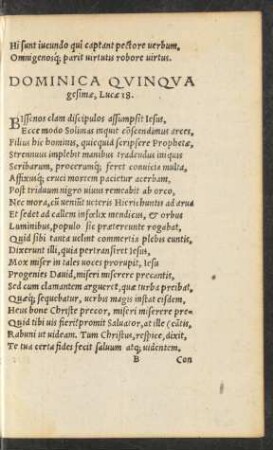 Hi sunt iucundo qui captant pectore uerbum,
Omnigenosq; parit uirtutis robore uirtus.
DOMINICA QVINQVA
gesimæ, Lucæ 18.
Bissenos clam discipulos assumpsit Iesus,
Ecce modo Solimas inquit cõscendimus arces,
Filius hic hominis, quicquid scripsere Prophetæ,
Strennuus implebit manibus tradendus iniquis
Scribarum, procerumq; feret conuicia multa,
Affixusq; cruci mortem pacietur acerbam,
Post triduum nigro uiuus remeabit ab orco,
Nec mora, cũ ueniũt ueteris Hierichuntis ad arua
Et sedet ad callem infœlix mendicus, & orbus
Luminibus, populo sic prætereunte rogabat,
Quid sibi tanta uelint commertia plebis euntis,
Dixerunt illi, quia pertransiret Iesus,
Mox miser in tales uoces prorupit, Iesu
Progenies Dauid, miseri miserere precantis,
Sed cum clamantem argueret, quæ turba preibat,
Quæq; sequebatur, uerbis magis instat eisdem,
Heus bone Christe precor, miseri miserere pre-
Quid tibi uis fieri? promit Saluator, at ille (cãtis,
Rabuni ut uideam. Tum Christus, respice, dixit,
Te tua certa fides fecit saluum atq; uidentem,
B Con